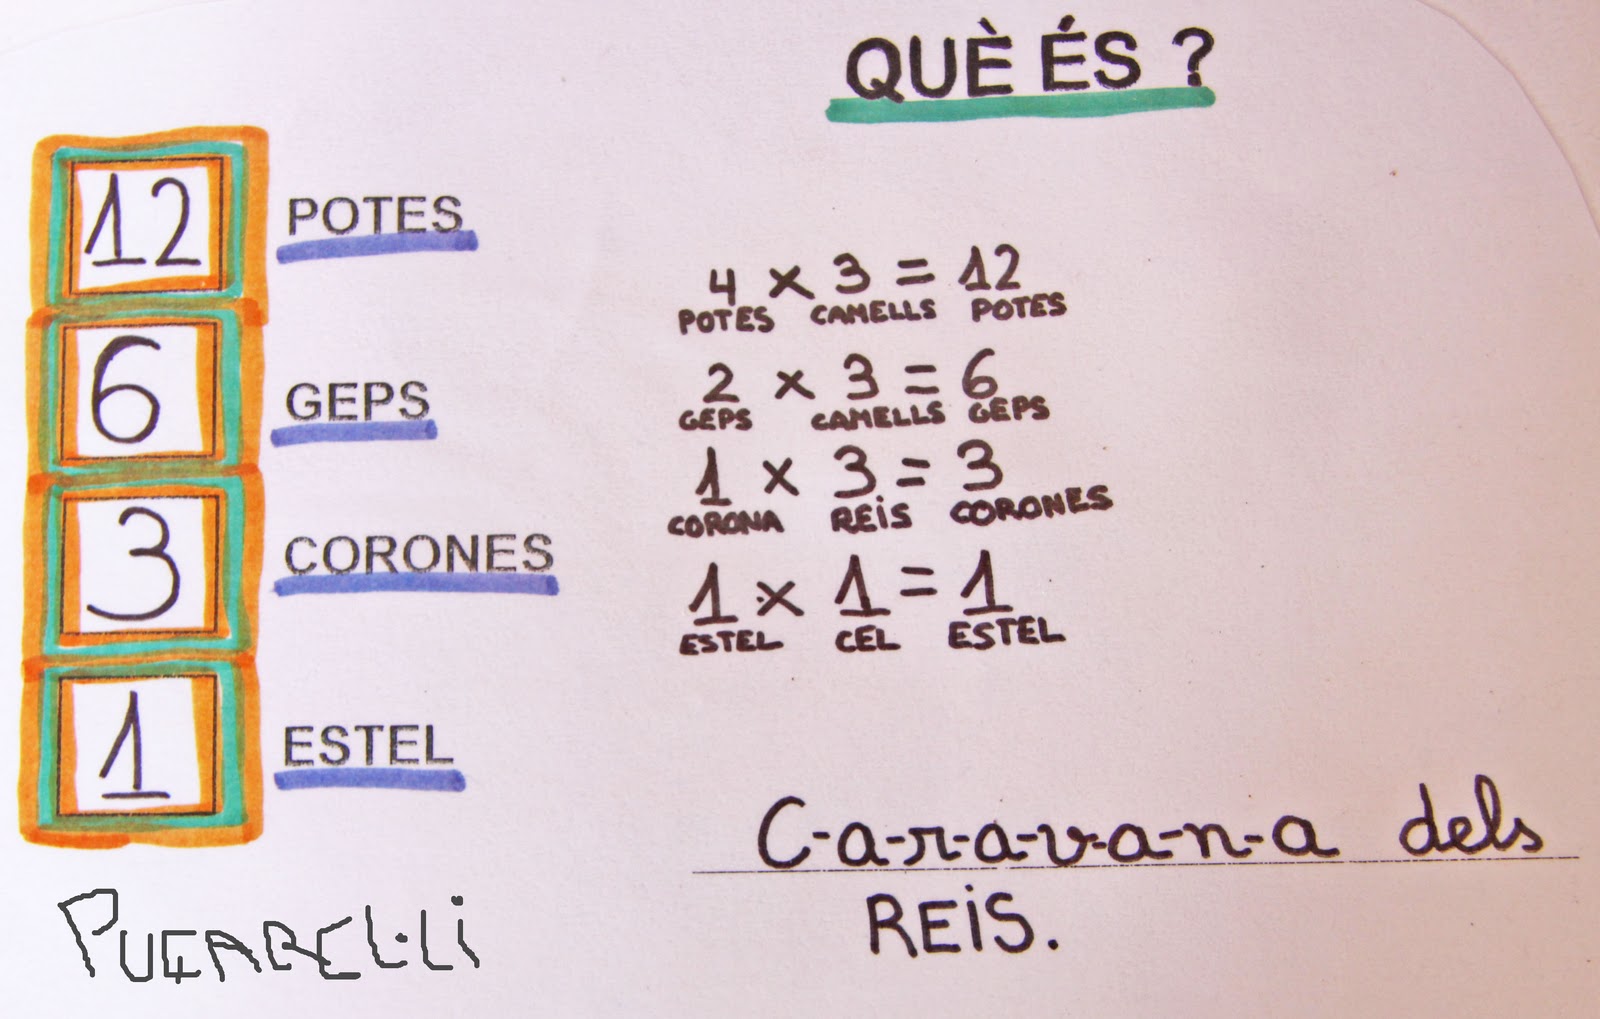 QUÈ ÉS ?
12 POTES
4 × 3 = 12
POTES CAMELLS POTES
6 GEPS
2 × 3 = 6
GEPS CAMELLS GEPS
3 CORONES
1 × 3 = 3
CORONA REIS CORONES
1 ESTEL
1 × 1 = 1
ESTEL CEL ESTEL
C-a-r-a-v-a-n-a dels
REIS.